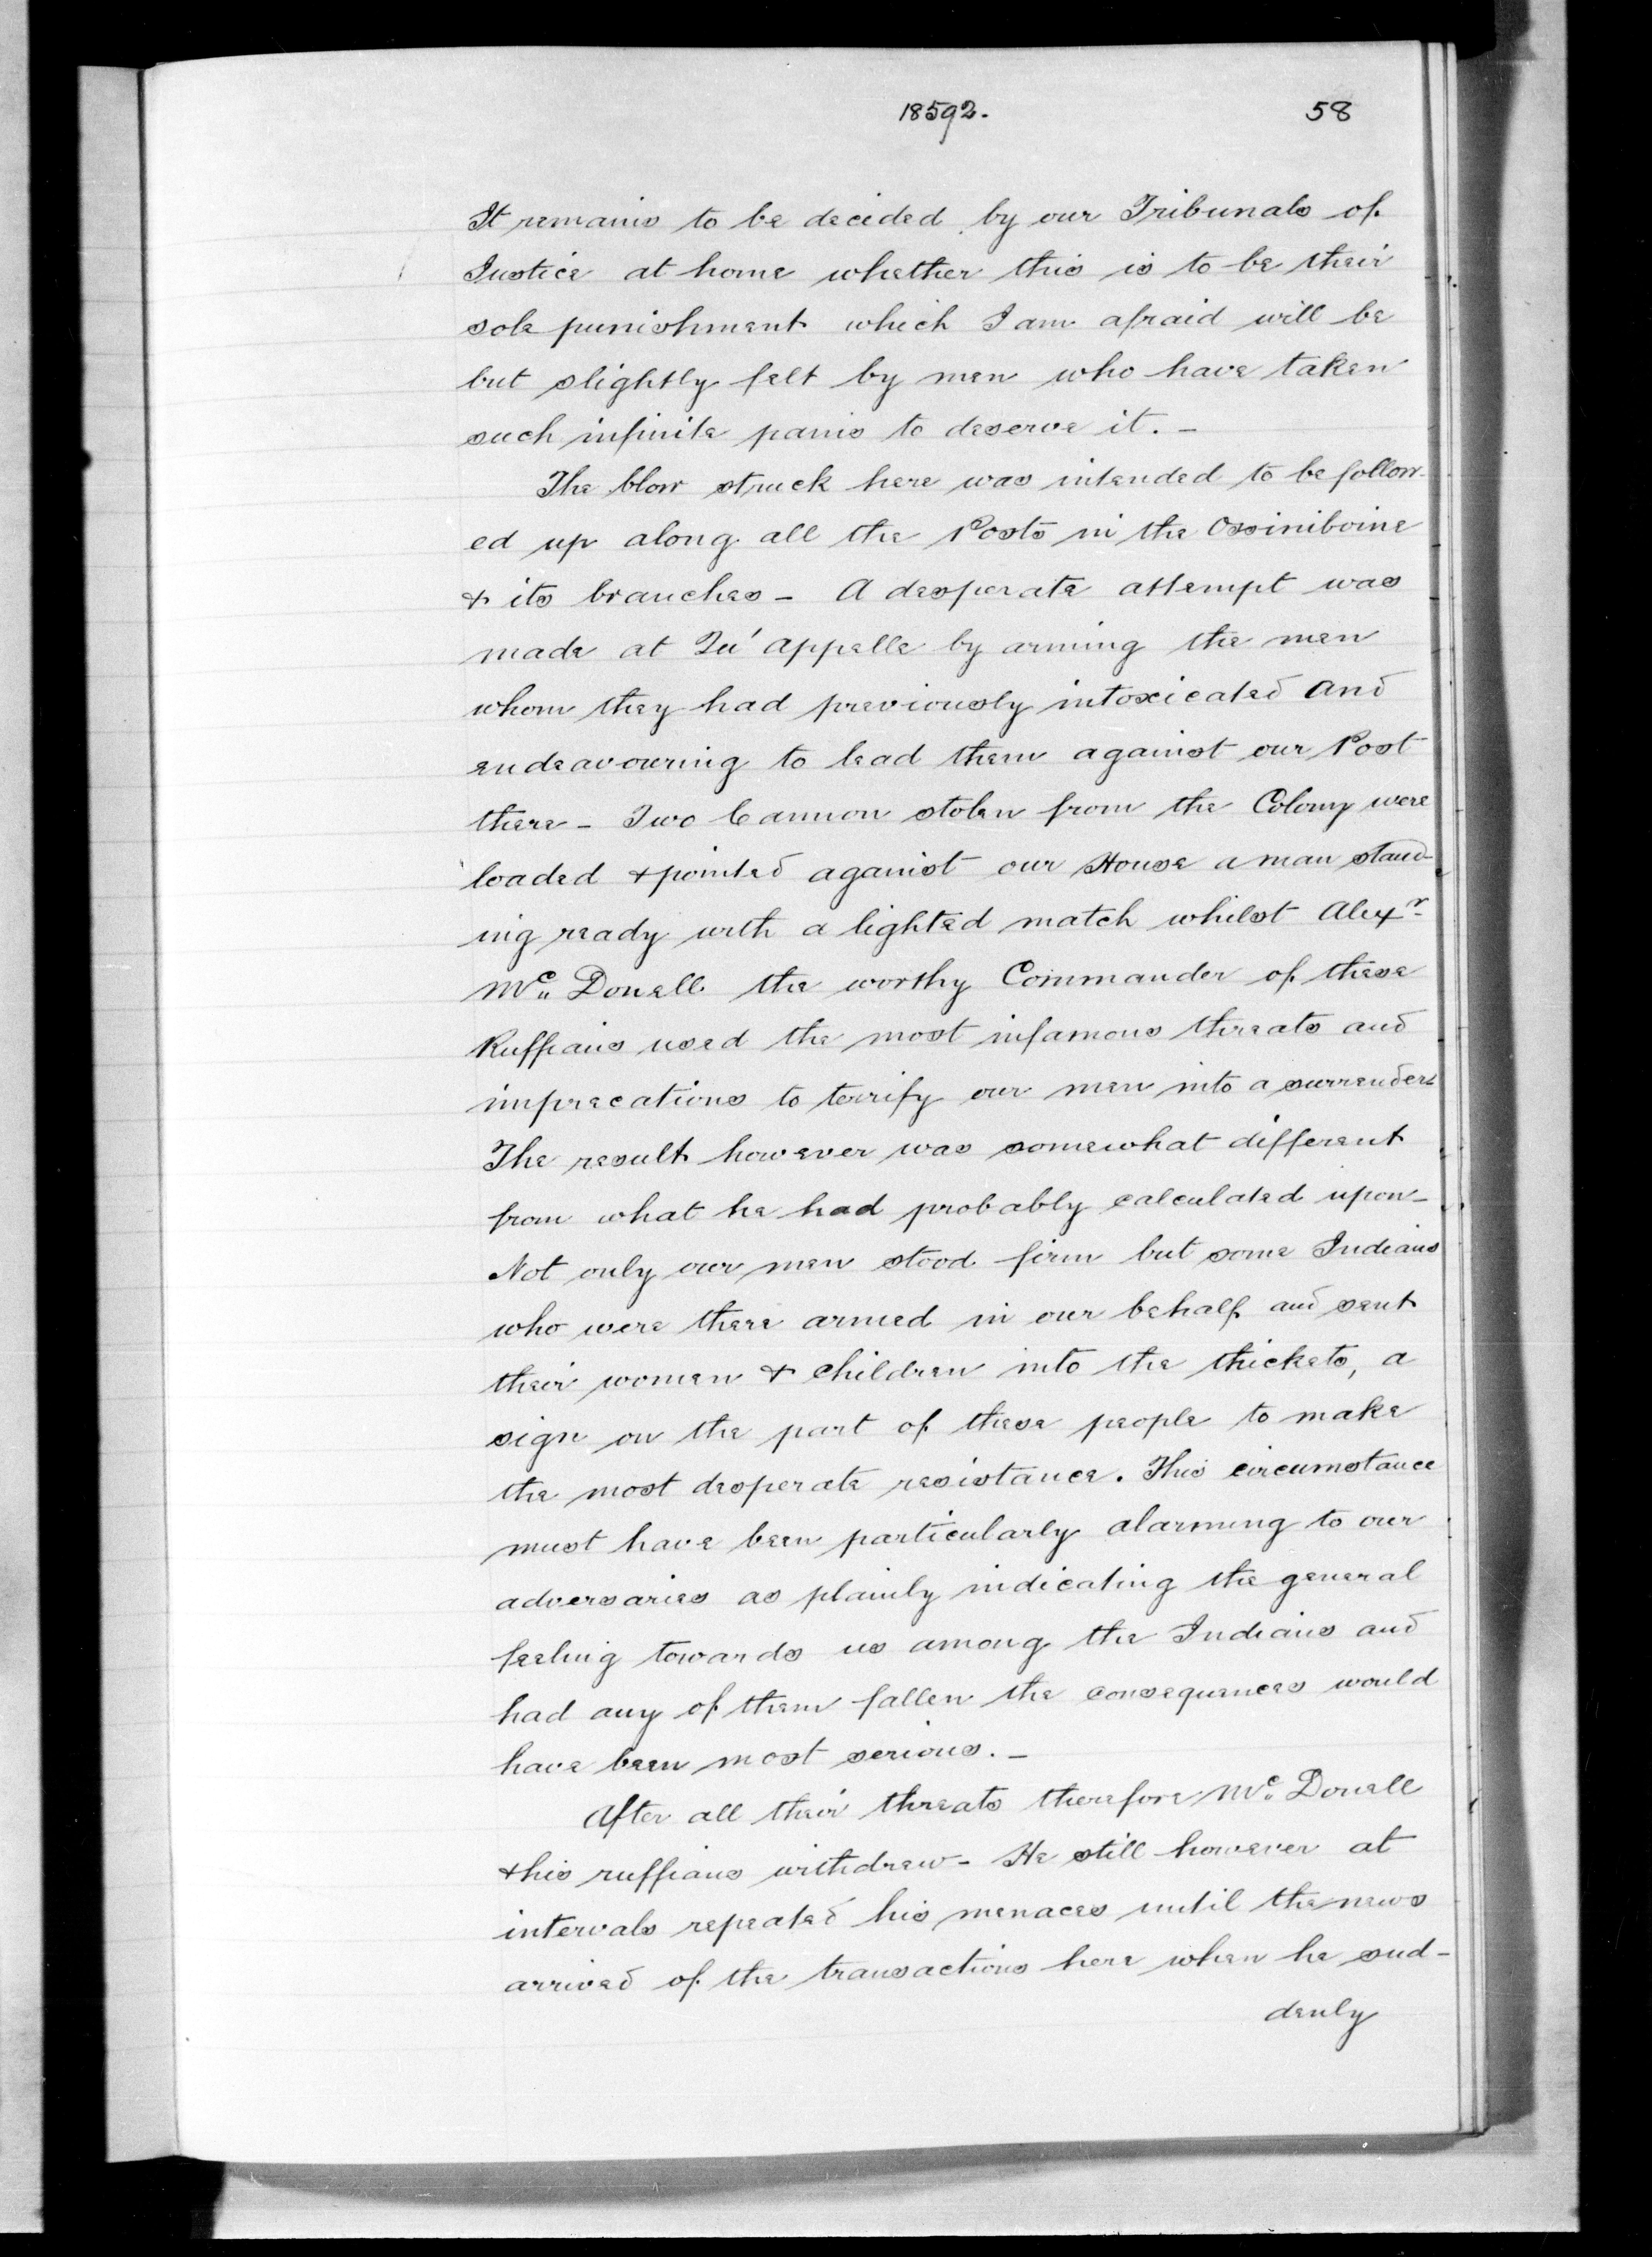 18592. 58
It remains to be decided by our Tribunals of
Justice at home whether this is to be their
sole punishment which I am afraid will be
but slightly felt by men who have taken
such infinite pains to deserve it. -
The blow struck here was intended to be follow-
ed up along all the Posts in the Ossiniboine
& its branches - A desperate attempt was
made at Qu'appelle by arming the men
whom they had previously intoxicated and
endeavouring to lead them against our Post
there - Two Cannon stolen from the Colony were
loaded & pointed against our House a man stand-
ing ready with a lighted match whilst Alexr
Mc Donell the worthy Commander of these
Ruffians used the most infamous threats and
imprecations to terrify our men into a surrender
The result however was somewhat different
from what he had probably calculated upon -
Not only our men stood firm but some Indians
who were there armed in our behalf and sent
their women & children into the thickets, a
sign on the part of these people to make
the most desperate resistance. This circumstance
must have been particularly alarming to our
adversaries as plainly indicating the general
feeling towards us among the Indians and
had any of them fallen the consequences would
have been most serious. -
After all their threats therefore Mc Donell
& his ruffians withdrew - He still however at
intervals repeated his menaces until the news
arrived of the transactions here when he sud-
denly